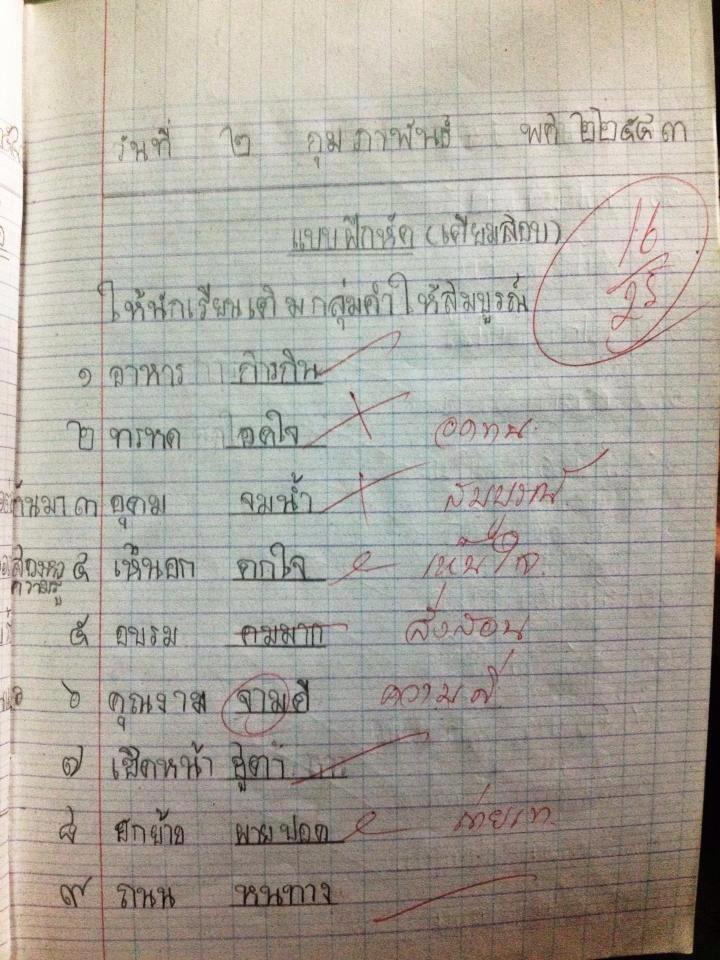 วันที่ ๒ กุมภาพันธ์ พศ ๒๒๕๕๓
แบบฝึกหัด (เตียมสอบ)
16
25
ให้นักเรียนเติมกลุ่มคำให้สมบูรณ์
๑ อาหาร การกิน
๒ ทรหด อดใจ อดทน
กันมา ๓ อุดม จมน้ำ สมบูรณ์
๔ เห็นอก ตกใจ เห็นใจ
ความรู้
๕ อบรม คมมาก สั่งสอน
๖ คุณงาม จามดี ความดี
๗ เชิดหน้า ชูตา
๘ ยกย้าย ผายปอด ถ่ายเท
๙ ถนน หนทาง